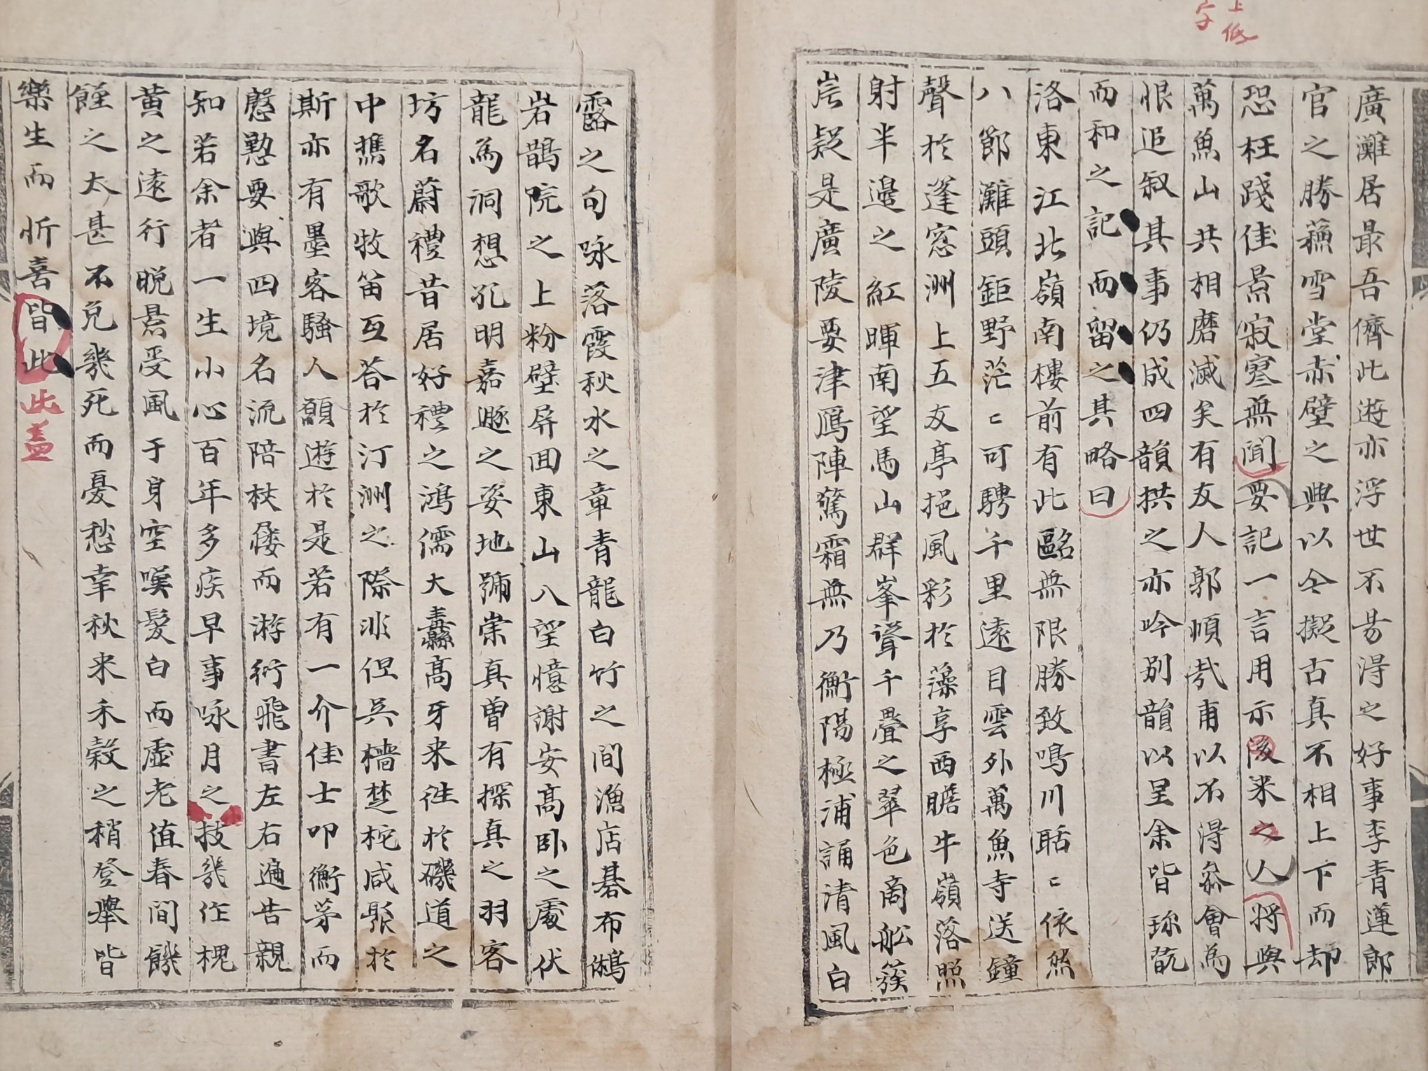 上低
字
廣灘居最吾儕此遊亦浮世不易得之好事李青蓮郎
官之勝蘓雪堂赤壁之興以今擬古真不相上下而却
恐枉踐佳景寂寞無聞要記一言用示後来之人將與
萬魚山共相磨滅矣有友人郭楨哉甫以不得叅會為
恨追叙其事仍成四韻拱之亦吟别韻以呈余皆珎翫
而和之記而留之其略曰
洛東江北嶺南樓前有此區無限勝致鳴川聒〻依然
八節灘頭鉅野茫〻可騁千里遠目雲外萬魚寺送鐘
聲於蓬窓洲上五友亭挹風彩於藻亭西瞻牛嶺落照
射半邉之紅暉南望馬山群峯聳千疊之翠色商舩簇
岸疑是廣陵要津鴈陣驚霜無乃衡陽極浦誦清風白
露之句咏落霞秋水之章青龍白竹之間漁店碁布鵂
岩鵲院之上粉壁屏囬東山八望憶謝安高卧之處伏
龍為洞想孔明嘉遯之姿地號棠真曽有探真之羽客
坊名蔚禮昔居好禮之鴻儒大纛高牙来徃於磯道之
中樵歌牧笛互荅於汀洲之際非但呉檣楚柁咸聚於
斯亦有墨客騷人願遊於是若有一介佳士叩衡茅而
慇懃要與四境名流陪杖屨而游衍飛書左右遍告親
知若余者一生小心百年多疾早事咏月之技幾作槐
黄之遠行晩景受風于身空嘆髮白而虚老值春間饑
饉之太甚不免幾死而憂愁幸秋来禾穀之稍登舉皆
樂生而忻喜皆此此盖